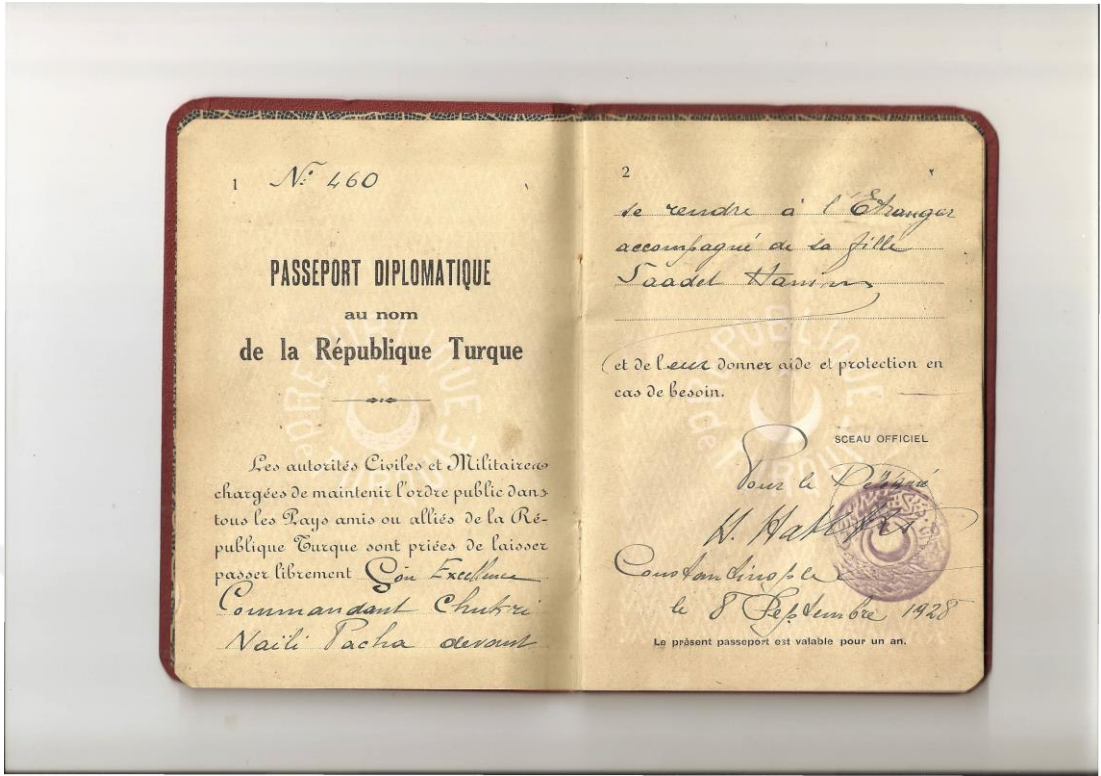 1 Nº 460
PASSEPORT DIPLOMATIQUE
au nom
de la République Turque
Les autorités Civiles et Militaires
chargées de maintenir l'ordre public dans
tous les Pays amis ou alliés de la Ré-
publique Turque sont priées de laisser
passer librement Son Excellence
Commandant Chukri
Naili Pacha devant
2
se rendre à l'Etranger
accompagné de sa fille
Saadet Hanim
et de leur donner aide et protection en
cas de besoin.
SCEAU OFFICIEL
Pour le Délégué
Constantinople
le 8 Septembre 1928
Le présent passeport est valable pour un an.